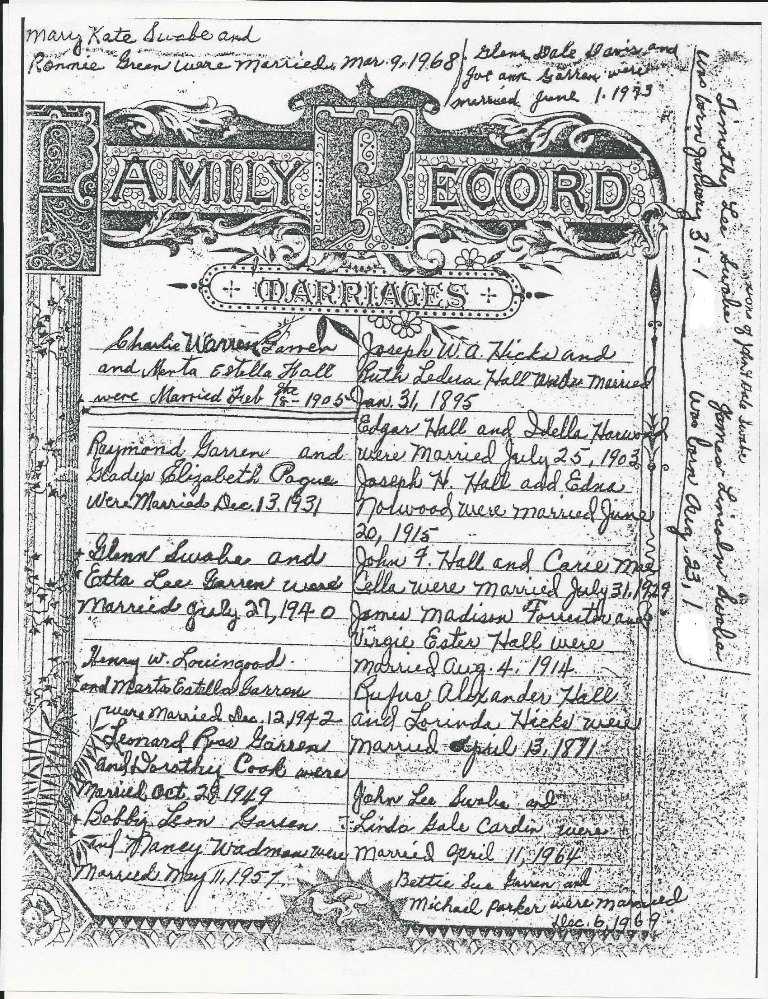 Mary Kate Swabe and
Ronnie Green were Married Mar. 9, 1968
Glenn Dale Davis and
Joe ann Garren were
married June 1, 1973
FAMILY RECORD
MARRIAGES
Charlie Warren Garren
and Menta Estella Hall
were Married Feb the 18- 1905
Raymond Garren and
Gladys Elizabeth Pogue
Were Married Dec. 13, 1931
Glenn Swabe and
Etta Lee Garren were
Married July 27, 1940
Henry W. Lovingood
and Marta Estella Garren
were Married Dec. 12, 1942
Leonard Ross Garren
and Dorothy Cook were
Married Oct. 29, 1949
Bobby Leon Garren
and Nancy Wadman were
Married May 11, 1957
Joseph W. A. Hicks and
Ruth Hall were Married
Jan. 31, 1895
Edgar Hall and Idella Harwood
were Married July 25, 1903
Joseph H. Hall and Edna
Norwood were Married June
20, 1915
John F. Hall and Carie Mae
Cella were Married July 31, 1929
James Madison Forrester and
Virgie Ester Hall were
Married Aug. 4, 1914
Rufus Alexander Hall
and Lorinda Hicks were
Married April 13, 1871
John Lee Swabe and
Linda Gale Cardin were
Married April 11, 1964
Bettie Sue Garren and
Michael Parker were Married
Dec. 6, 1969
sons of John & Gale Swabe
Timothy Lee Swabe
was born January 31-1
James Lincoln Swabe
was born Aug. 23, 1